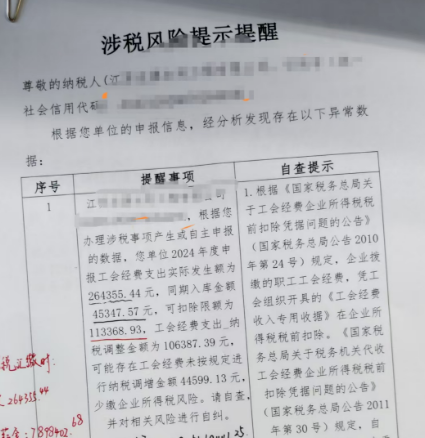 涉税风险提示提醒
尊敬的纳税人(江
社会信用代码
根据您单位的申报信息，经分析发现存在以下异常数
据：
序号
提醒事项
自查提示
1
江
公司
，根据您
办理涉税事项产生或自主申报
的数据，您单位2024年度申
报工会经费支出实际发生额为
264355.44元，同期入库金额
45347.57元，可扣除限额为
113368.93，工会经费支出_纳
税调整金额为106387.39元，可
能存在工会经费未按规定进
行纳税调增金额44599.13元，
少缴企业所得税风险。请自查，
并对相关风险进行自纠。
1.根据《国家税务总局关
于工会经费企业所得税税
前扣除凭据问题的公告》
（国家税务总局公告2010
年第24号）规定，企业拨
缴的职工工会经费，凭工
会组织开具的《工会经费
收入专用收据》在企业所
得税税前扣除。《国家税
务总局关于税务机关代收
工会经费企业所得税税前
扣除凭据问题的公告》
（国家税务总局公告2011
年第30号）规定，自
264355.44
7898402.68
25.